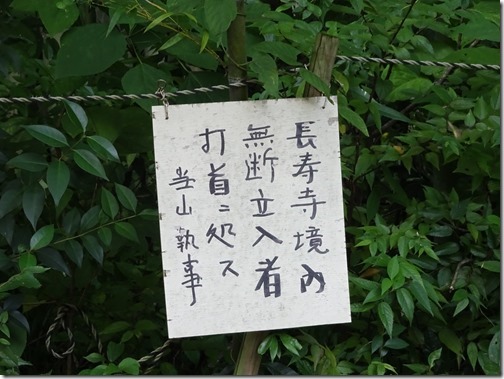 長寿寺境内
無断立入者
打首ニ処ス
当山執事